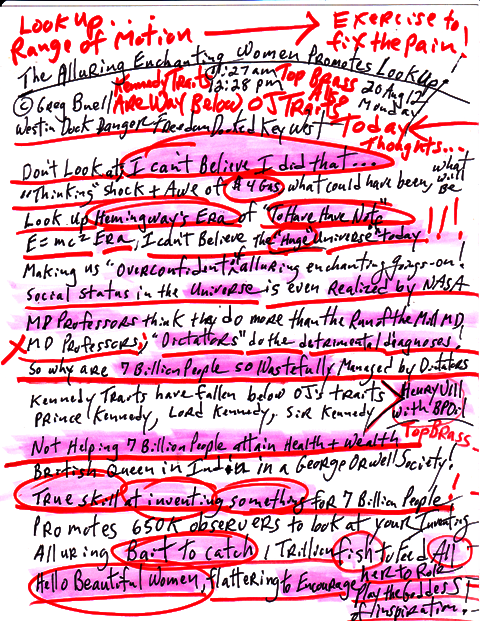 Look Up... Exercise to
Range of Motion → fix the Pain!
The Alluring Enchanting Women Promotes Look Up!
Kennedy Traits 9:27 am Top Brass 20 Aug 12
© Greg Buell Are Way Below 12:28 pm OJ Traits Also Monday
Westin Dock Ranger Freedom Docked Key West Today
Thoughts...
Don't Look at, I can't Believe I did that... what
"Thinking" shock + Awe of $4 Gas what could have been, will BE
Look up Hemingway's Era of "To Have Have Note" !!!
E=mc² Era, I can't Believe the "Huge" Universe "today"
Making us "overconfident" of alluring enchanting goings-on!
Social status in the Universe is even Realized by NASA
MD Professors think they do more than the Run of the Mill MD,
X MD Professors, "Dictators" do the detrimental diagnoses!
So why are 7 Billion People so Wastefully Managed by Dictators
Kennedy Traits have fallen below OJ's traits Henry VIII
Prince Kennedy, Lord Kennedy, Sir Kennedy with "BP Oil"
Top Brass
Not Helping 7 Billion People attain Health + Wealth
British Queen in India in a George Orwell Society!
True skill at inventing something for 7 Billion People!
Promotes 650K observers to look at your Inventing
Alluring Bait to catch 1 Trillion fish to feed All
Hello Beautiful Women, flattering to Encourage her to Role
Play the Goddess
of Inspiration.